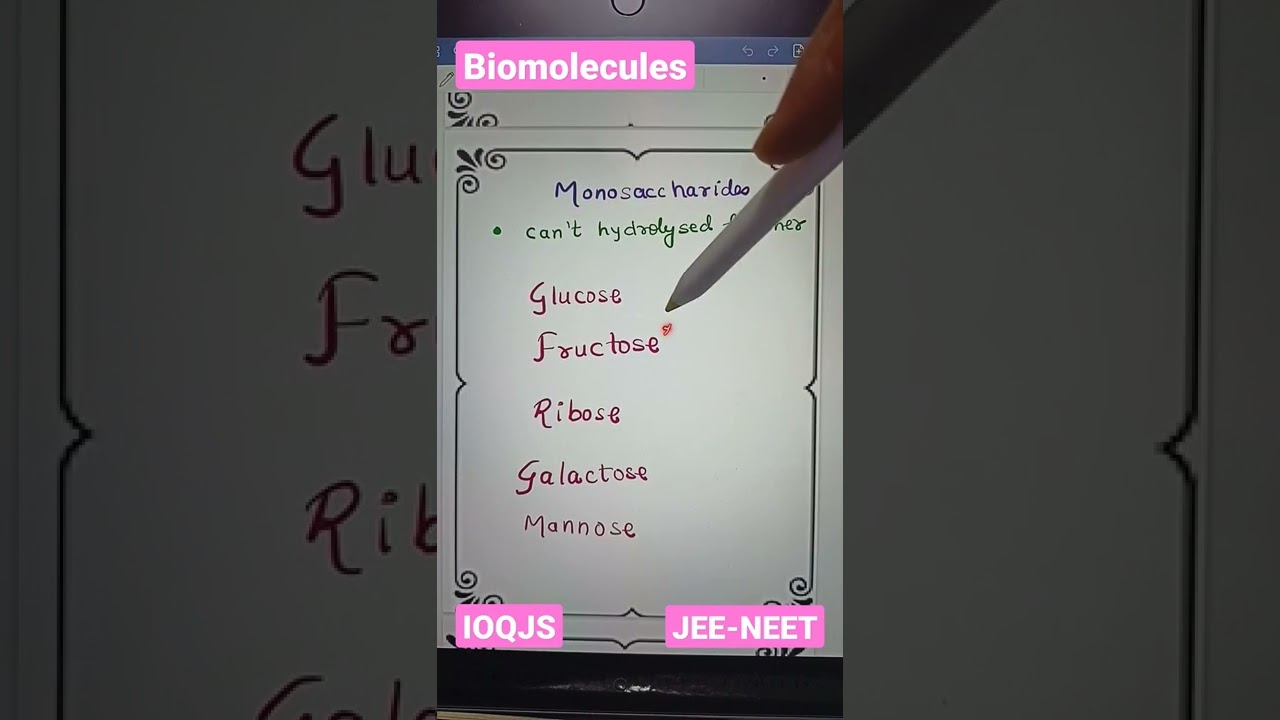 Biomolecules
Monosaccharides
• can't hydrolysed
Glucose
Fructose
Ribose
Galactose
Mannose
IOQJS
JEE-NEET